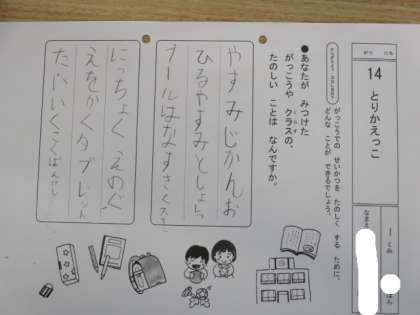 がつ にち
14 とりかえっこ
一 くみ
ばん
なまえ
がっこうでの せいかつを たのしく する ために、
どんな ことが できるでしょう。
●あなたが みつけた
がっこうや クラスの、
たのしい ことは なんですか。
やすみじかんお
ひるやすみとしょしつ
ールはなすきくス
にっちょく えのぐ
えをかくタブレット
たいいくこくばん